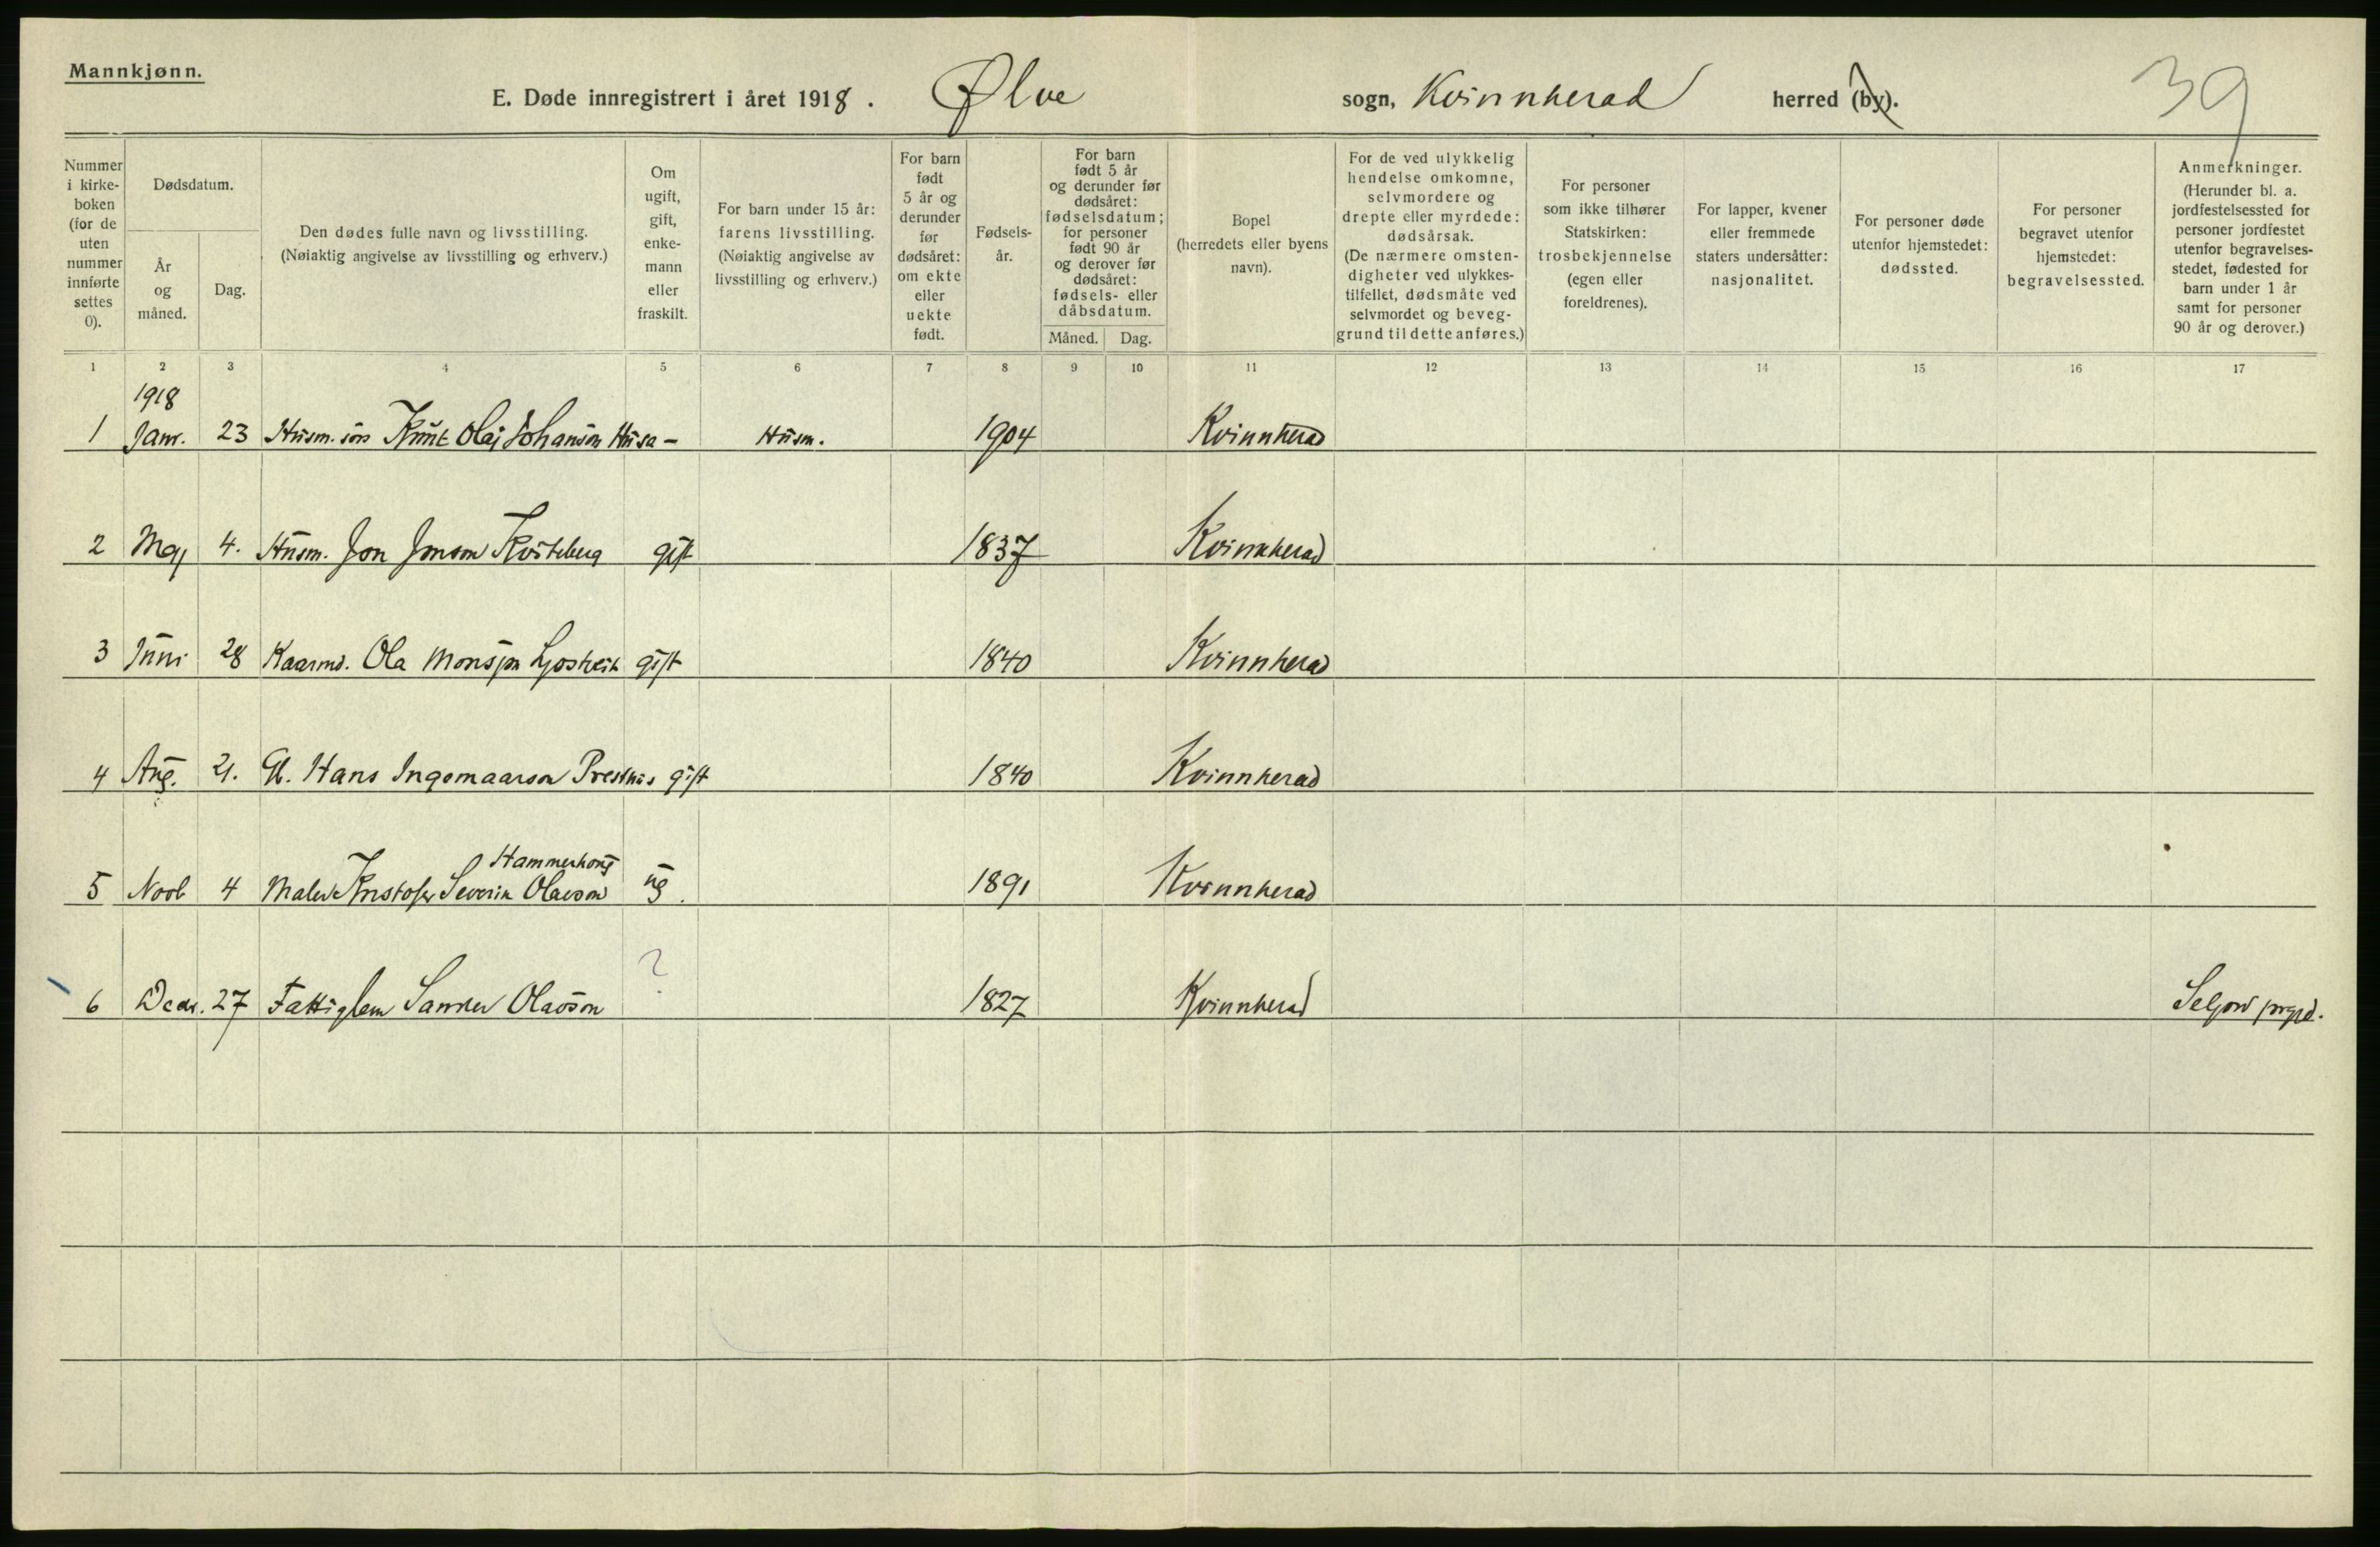 Mannkjønn.
E. Døde innregistrert i året 1918. Ølve sogn, Kvinnherad herred (by). 39
Nummer i kirkeboken (for de uten nummer innførte settes 0).
Dødsdatum.
År og måned.
Dag.
Den dødes fulle navn og livsstilling. (Nøiaktig angivelse av livsstilling og erhverv.)
Om ugift, gift, enkemann eller fraskilt.
For barn under 15 år: farens livsstilling. (Nøiaktig angivelse av livsstilling og erhverv.)
For barn født 5 år og derunder før dødsåret: om ekte eller uekte født.
Fødselsår.
For barn født 5 år og derunder før dødsåret: fødselsdatum; for personer født 90 år og derover før dødsåret: fødsels- eller dåbsdatum.
Måned. Dag.
Bopel (herredets eller byens navn).
For de ved ulykkelig hendelse omkomne, selvmordere og drepte eller myrdede: dødsårsak. (De nærmere omstendigheter ved ulykkestilfellet, dødsmåte ved selvmordet og beveggrund til dette anføres.)
For personer som ikke tilhører Statskirken: trosbekjennelse (egen eller foreldrenes).
For lapper, kvener eller fremmede staters undersåtter: nasjonalitet.
For personer døde utenfor hjemstedet: dødssted.
For personer begravet utenfor hjemstedet: begravelsessted.
Anmerkninger. (Herunder bl. a. jordfestelsessted for personer jordfestet utenfor begravelsesstedet, fødested for barn under 1 år samt for personer 90 år og derover.)
1 2 3 4 5 6 7 8 9 10 11 12 13 14 15 16 17
1918
1 Janr. 23 Husm. søn Knut Olai Johanson Husa - Husm. 1904 Kvinnherad
2 Maj 4. Husm. Jon Jonson Kviteberg gift 1837 Kvinnherad
3 Juni 28 Kaarmd. Ola Monsson Ljosheim gift 1840 Kvinnherad
4 Aug. 21. Gb. Hans Ingemaarson Prestnes gift 1840 Kvinnherad
Hammerhaug
5 Novb 4 Maler Kristofer Severin Olavson ug. 1891 Kvinnherad
6 Decr. 27 Fattiglem Sander Olavson ? 1827 Kvinnherad Seljord prgjd.